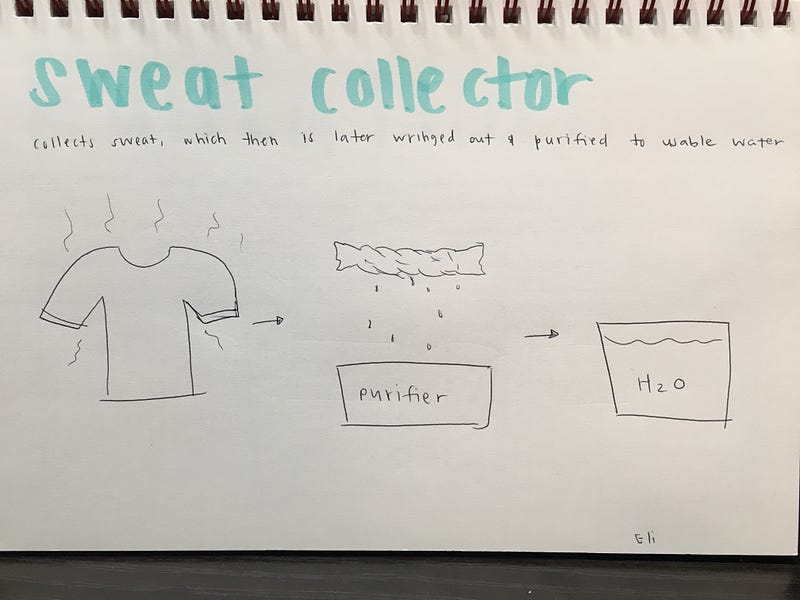 sweat collector
collects sweat, which then is later wringed out & purified to usable water
purifier
H2O
Eli